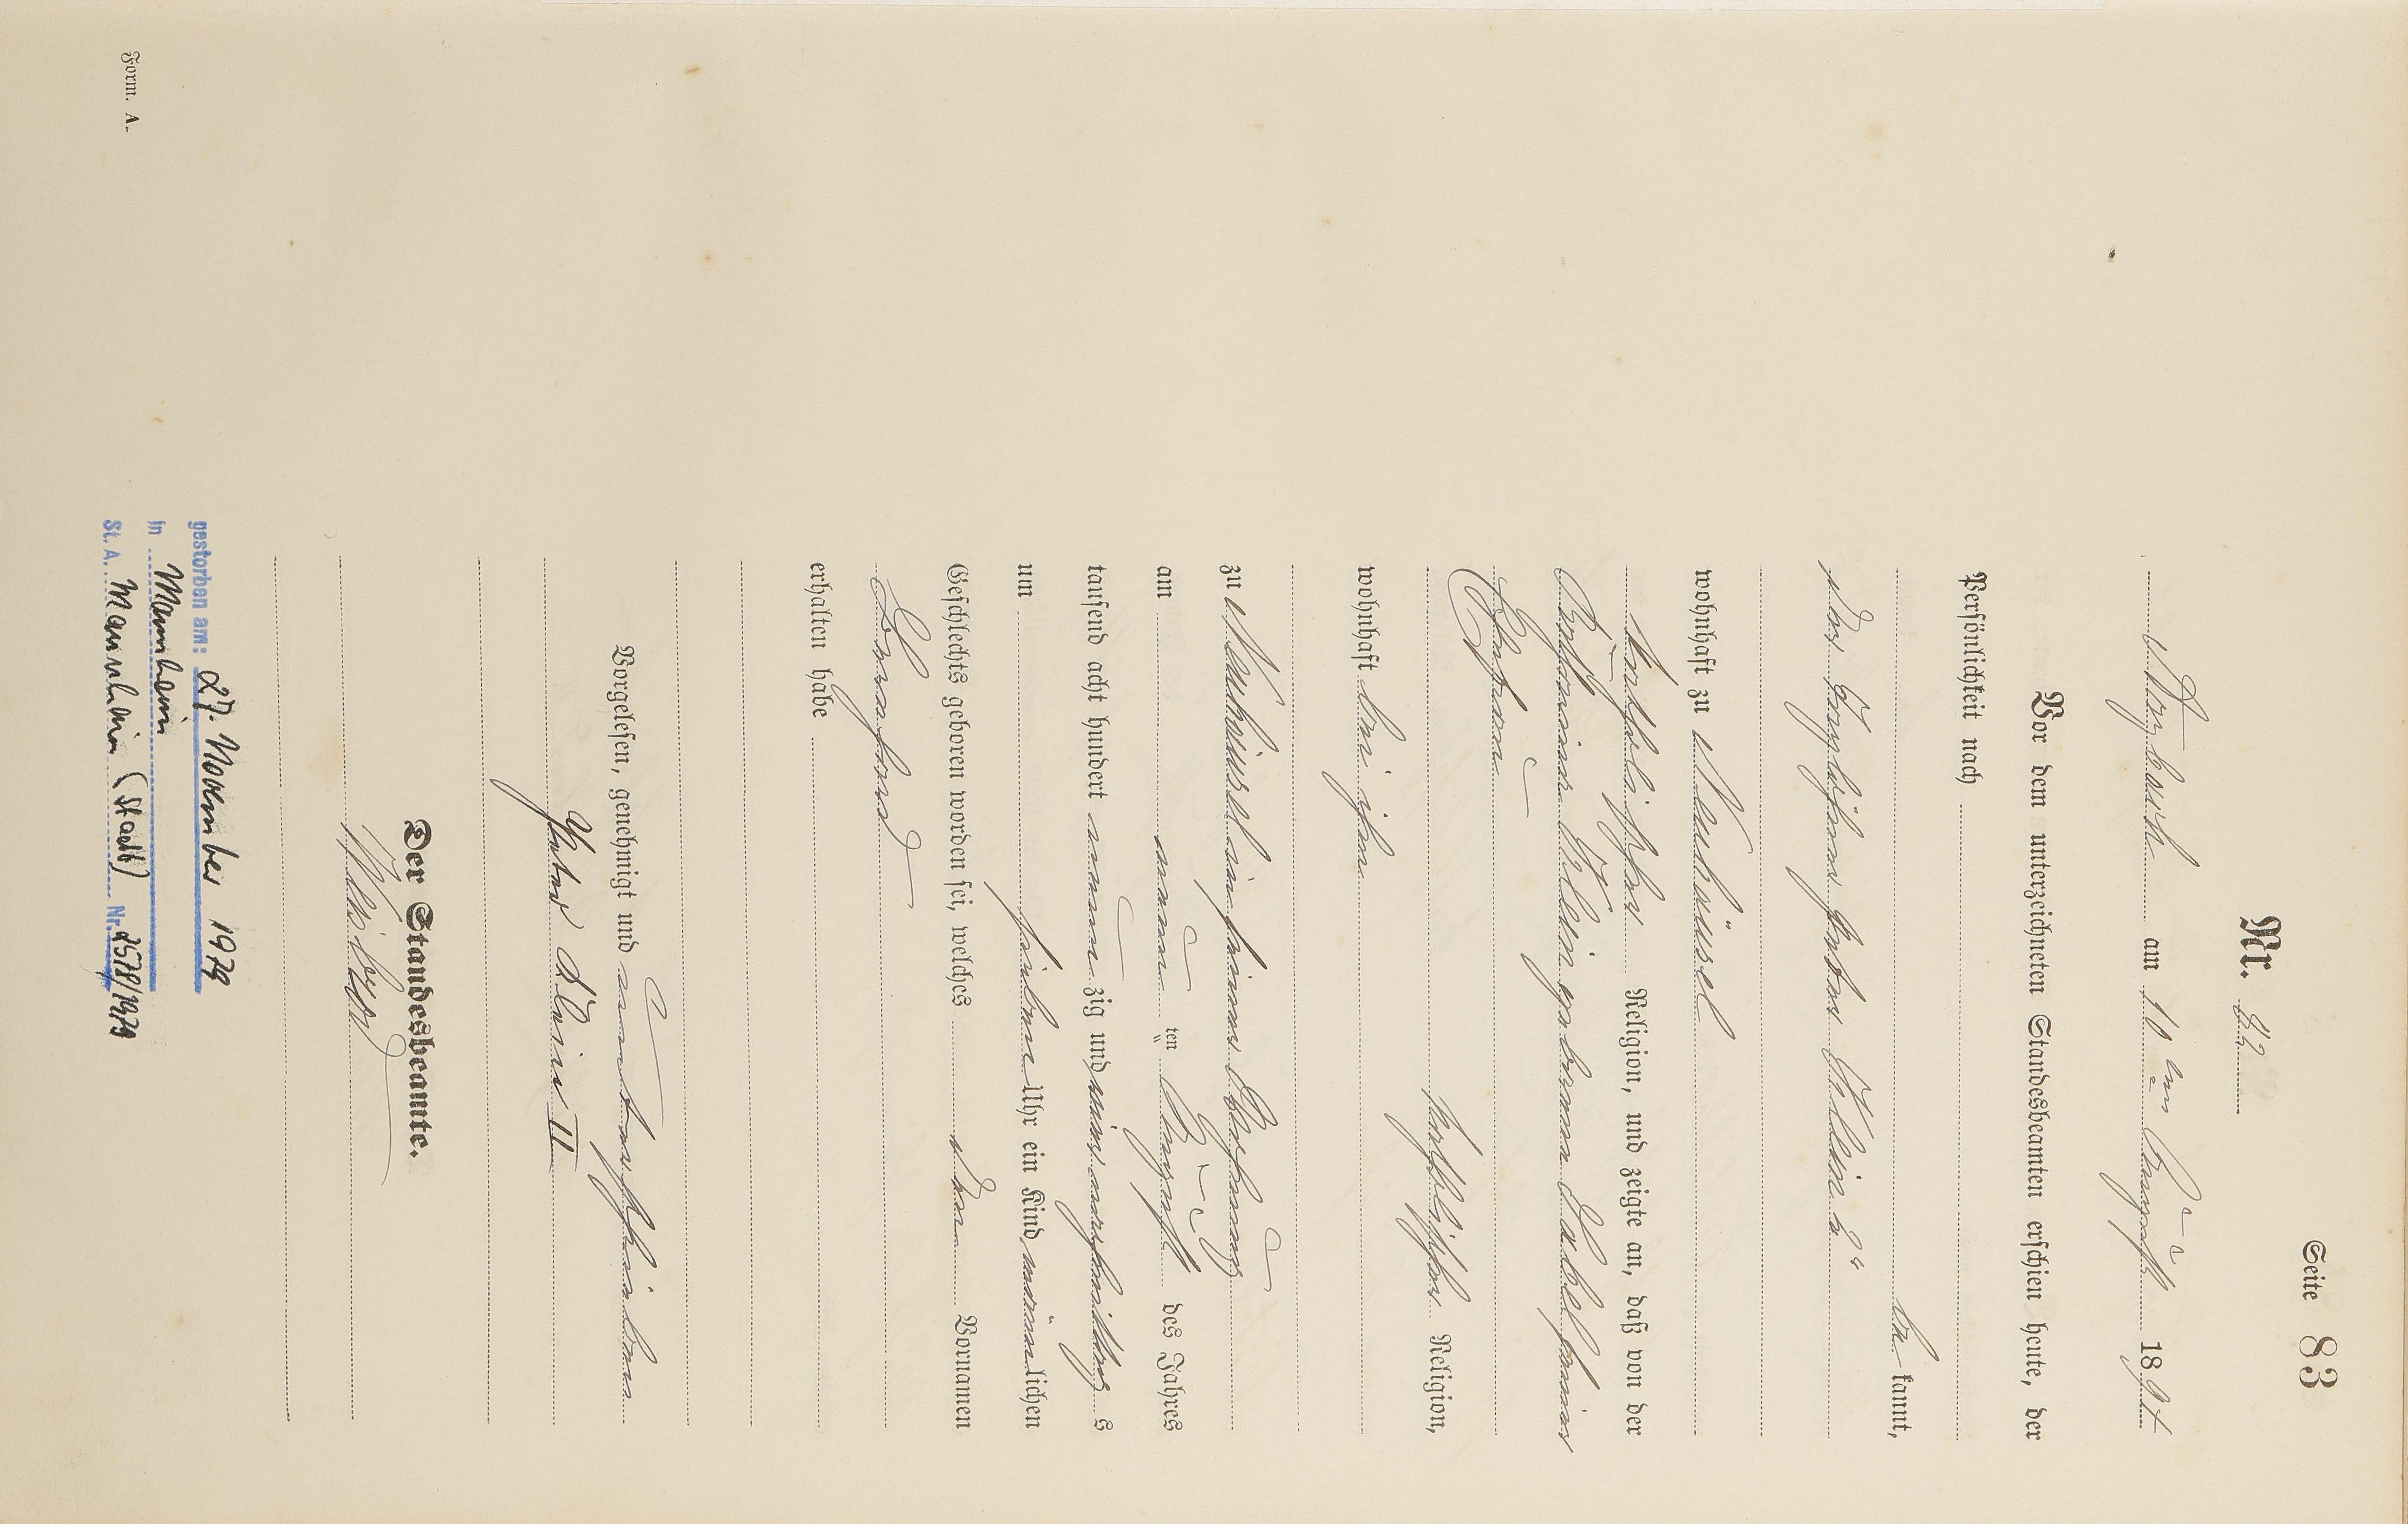 Seite 83
Nr. 82
Arzbach am 10 ten August 1894
Vor dem unterzeichneten Standesbeamten erschien heute, der
Persönlichkeit nach
be kannt,
der Taglöhner Peter Klein 2ter
wohnhaft zu Neuhäusel
katholischer Religion, und zeigte an, daß von der
Katharina Klein geborenen seiner
Ehefrau
katholischer Religion,
wohnhaft bei ihm
zu Neuhäusel in seiner Wohnung
am neun ten August des Jahres
tausend acht hundert neun zig und vier vormittags
um sieben Uhr ein Kind männlichen
Geschlechts geboren worden sei, welches den Vornamen
erhalten habe
Vorgelesen, genehmigt und unterschrieben
Peter Klein II
Der Standesbeamte.
gestorben am: 27. November 1979
in Mannheim
St. A. Mannheim (Stadt) Nr. 2578/1979
Form. A.